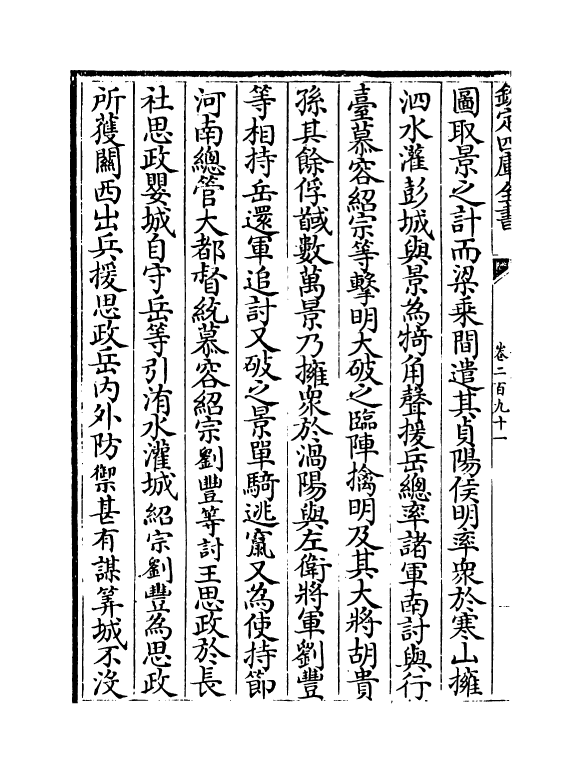 欽定四庫全書
卷二百九十一
圖取景之計而梁乗間遣其貞陽侯明率衆於寒山擁
泗水灌彭城與景為犄角聲援岳總率諸軍南討與行
臺慕容紹宗等擊明大破之臨陣擒明及其大將胡貴
孫其餘俘馘數萬景乃擁衆於渦陽與左衛將軍劉豐
等相持岳還軍追討又破之景單騎逃竄又為使持節
河南總管大都督統慕容紹宗劉豐等討王思政於長
社思政嬰城自守岳等引洧水灌城紹宗劉豐為思政
所獲關西出兵援思政岳内外防禦甚有謀筭城不没